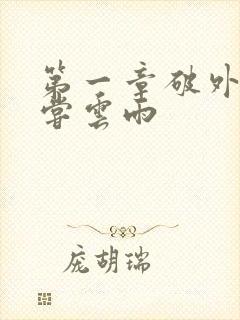 第一章破外
雲雨
庞胡瑞